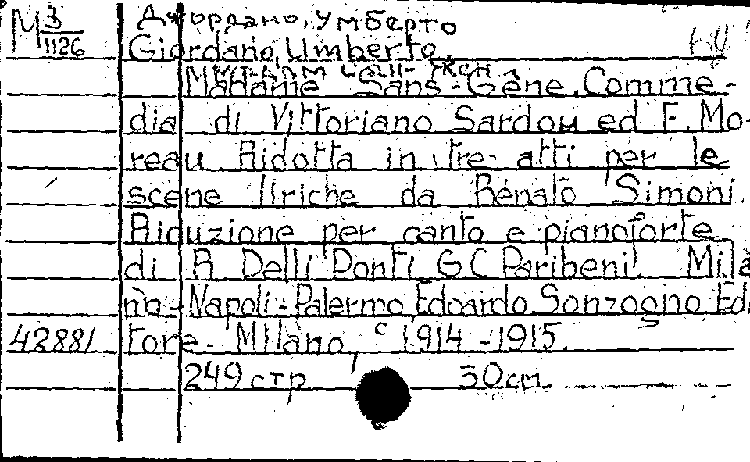 М 3/1126 Джордано, Умберто
Giordano, Umberto.
Мадам Сан-Жен
Madame Sans-Gêne. Comme-
dia di Vittoriano Sardou ed E. Mo-
reau Ridotta in tre atti per le
scene liriche da Renato Simoni.
Riduzione per canto e pianoforte
di R. Delli Ponti G C Paribeni. Mila
no-Napoli-Palermo, Edoardo Sonzogno Edi
42881 tore - Milano, c 1914-1915.
249 стр 30см.